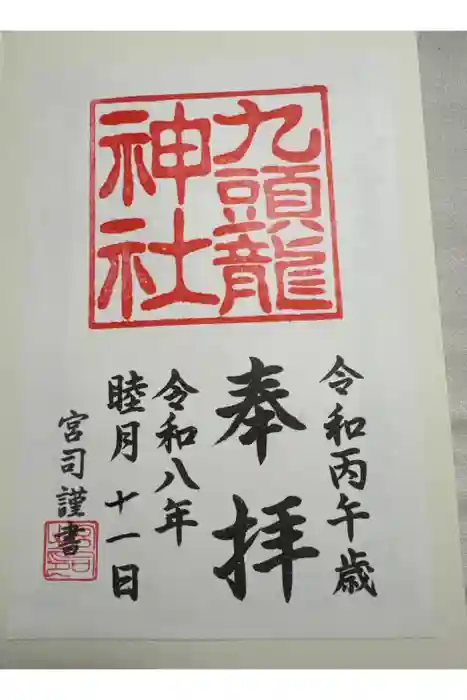 九頭龍
神社
令和丙午歳
奉拝
令和八年
睦月十一日
宮司謹書